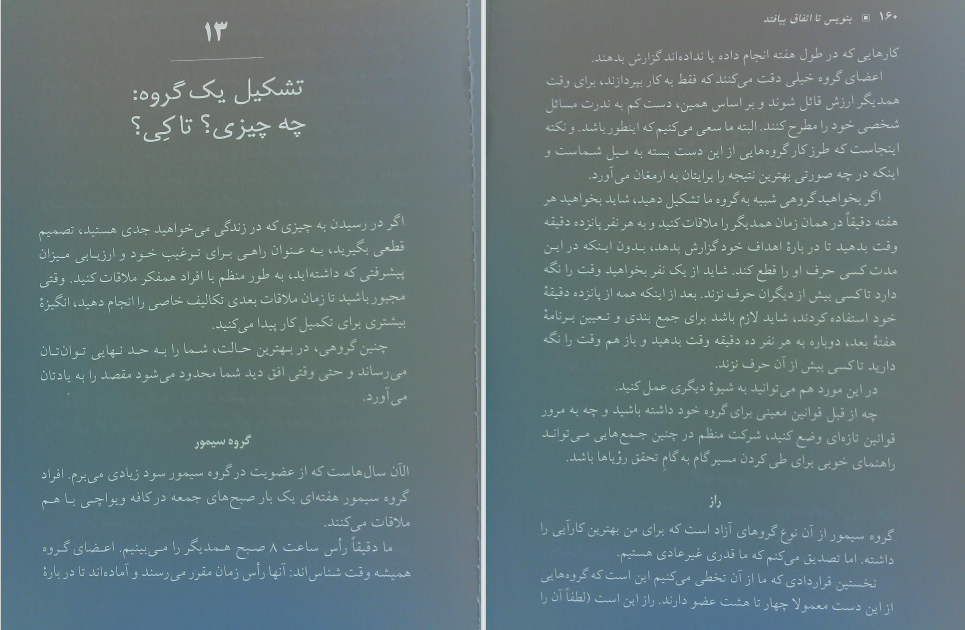 ۱۳
تشکیل یک گروه:
چه چیزی؟ تا کِی؟
اگر در رسیدن به چیزی که در زندگی می‌خواهید جدی هستید، تصمیم
قطعی بگیرید، به عنوان راهی برای ترغیب خود و ارزیابی میزان
پیشرفتی که داشته‌اید، به طور منظم با افراد همفکر ملاقات کنید. وقتی
مجبور باشید تا زمان ملاقات بعدی تکالیف خاصی را انجام دهید، انگیزهٔ
بیشتری برای تکمیل کار پیدا می‌کنید.
چنین گروهی، در بهترین حالت، شما را به حد نهایی توان‌تان
می‌رساند و حتی وقتی افق دید شما محدود می‌شود مقصد را به یادتان
می‌آورد.
گروه سیمور
الآن سال‌هاست که از عضویت در گروه سیمور سود زیادی می‌برم. افراد
گروه سیمور هفته‌ای یک بار صبح‌های جمعه در کافه ویواچی با هم
ملاقات می‌کنند.
ما دقیقاً رأس ساعت ۸ صبح همدیگر را می‌بینیم. اعضای گروه
همیشه وقت شناس‌اند: آنها رأس زمان مقرر می‌رسند و آماده‌اند تا در بارهٔ
۱۶۰ ▣ بنویس تا اتفاق بیافتد
کارهایی که در طول هفته انجام داده یا نداده‌اند گزارش بدهند.
اعضای گروه خیلی دقت می‌کنند که فقط به کار بپردازند، برای وقت
همدیگر ارزش قائل شوند و بر اساس همین، دست کم به ندرت مسائل
شخصی خود را مطرح کنند. البته ما سعی می‌کنیم که اینطور باشد. و نکته
اینجاست که طرز کار گروه‌هایی از این دست بسته به میل شماست و
اینکه در چه صورتی بهترین نتیجه را برایتان به ارمغان می‌آورد.
اگر بخواهید گروهی شبیه به گروه ما تشکیل دهید، شاید بخواهید هر
هفته دقیقاً در همان زمان همدیگر را ملاقات کنید و به هر نفر پانزده دقیقه
وقت بدهید تا در بارهٔ اهداف خود گزارش بدهد، بدون اینکه در این
مدت کسی حرف او را قطع کند. شاید از یک نفر بخواهید وقت را نگه
دارد تا کسی بیش از دیگران حرف نزند. بعد از اینکه همه از پانزده دقیقهٔ
خود استفاده کردند، شاید لازم باشد برای جمع بندی و تعیین برنامهٔ
هفتهٔ بعد، دوباره به هر نفر ده دقیقه وقت بدهید و باز هم وقت را نگه
دارید تا کسی بیش از آن حرف نزند.
در این مورد هم می‌توانید به شیوهٔ دیگری عمل کنید.
چه از قبل قوانین معینی برای گروه خود داشته باشید و چه به مرور
قوانین تازه‌ای وضع کنید، شرکت منظم در چنین جمع‌هایی می‌تواند
راهنمای خوبی برای طی کردن مسیر گام به گامِ تحقق رؤیاها باشد.
راز
گروه سیمور از آن نوع گروهای آزاد است که برای من بهترین کارآیی را
داشته. اما تصدیق می‌کنم که ما قدری غیرعادی هستیم.
نخستین قراردادی که ما از آن تخطی می‌کنیم این است که گروه‌هایی
از این دست معمولا چهار تا هشت عضو دارند. راز این است (لطفاً آن را